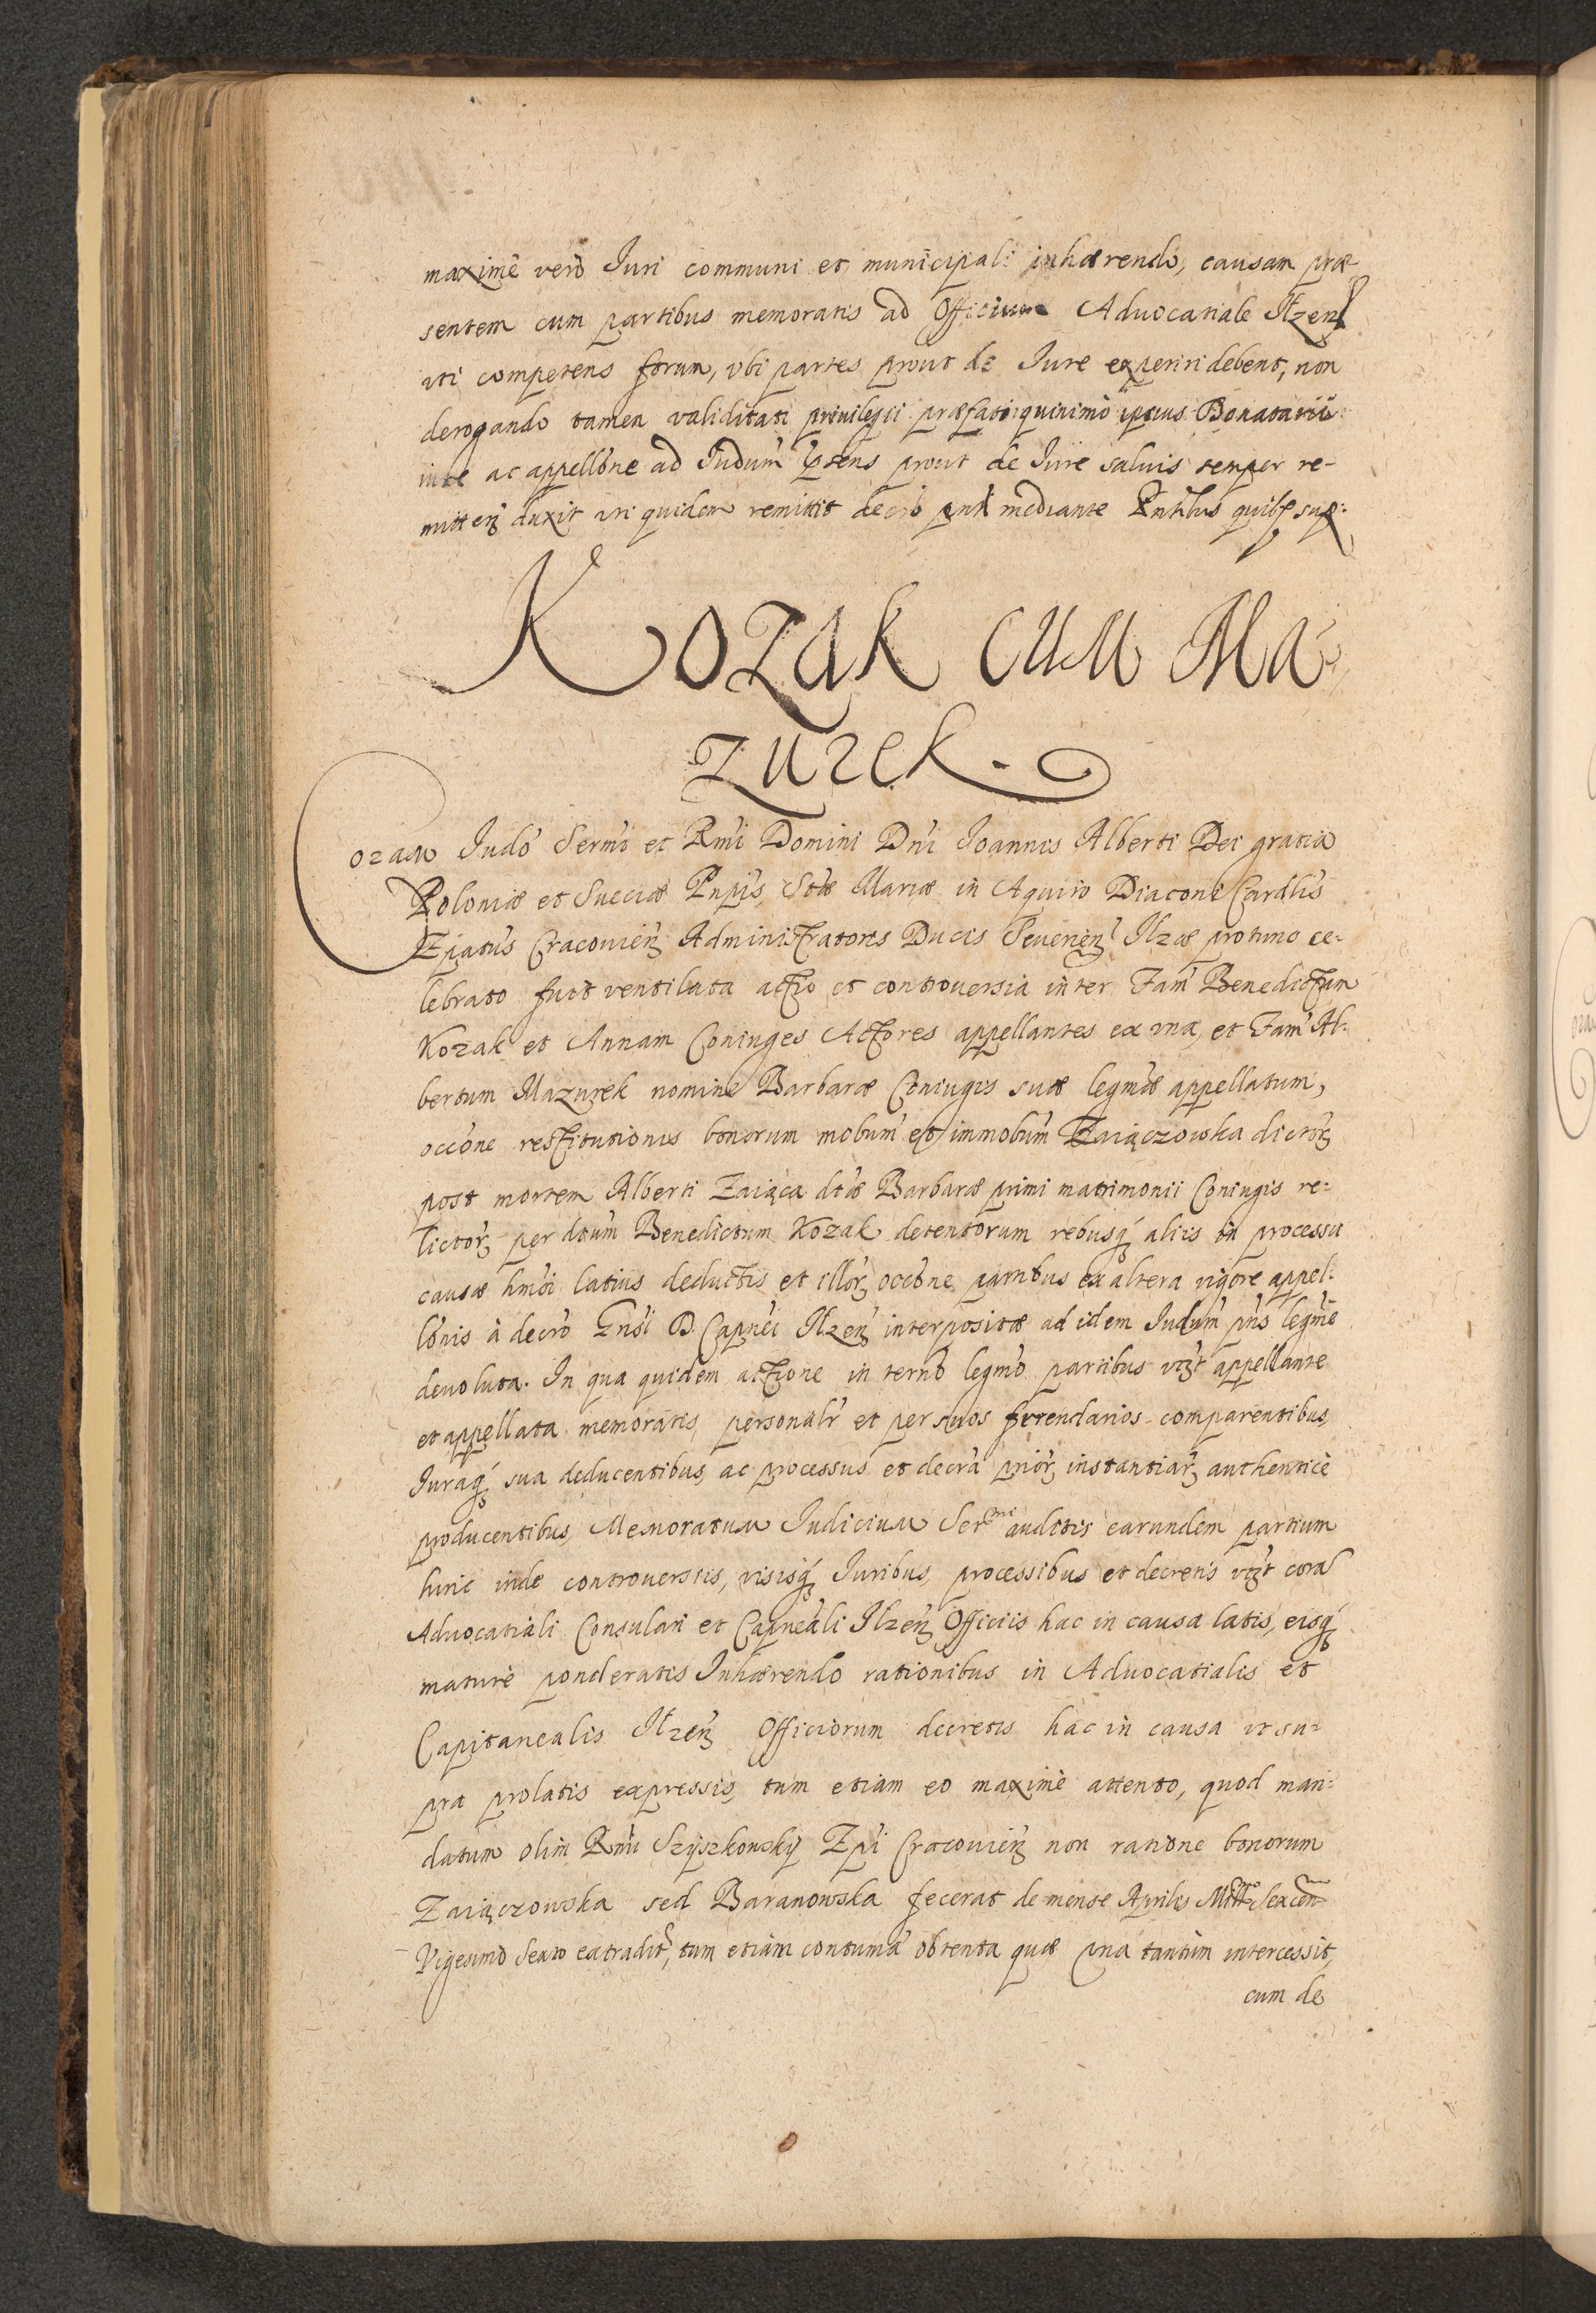 maximè verò Iuri communi et municipali inhærendo, causam præ
sentem cum partibus memoratis ad Officium Aduocatiale Ilzen
uti competens forum, vbi partes prout de Iure experiri debent, non
derogando tamen validitati priuilegii præfati quinimò ipsius Donatarii
iure ac appellõne ad Iudum prout de Iure saluis semper re-
mitten duxit uti quidem remittit decrõ mediante quibs sup:
Kozak cum Ma-
zurek.
Coram Iudõ Sermi et Rmi Domini Dni Ioannis Alberti Dei gratia
Poloniæ et Sueciæ Pnpis, Stæ Mariæ in Aquiro Diaconi Cardlis
Epatus Cracouien Administratoris Ducis Seuerien Ilzæ protunc ce-
lebrato fuit ventilata actio et controuersia inter Fam Benedictum
Kozak et Annam Coniuges Actores appellantes ex una, et Fam Al-
bertum Mazurek nomine Barbaræ Coniugis suæ legmæ appellatum,
occõne restitutionis bonorum mobum et immobum Zaiączowska dictor
post mortem Alberti Zaiąca dtæ Barbaræ primi matrimonii Coniugis re-
lictor per dtum Benedictum Kozak detentorum rebusq aliis in processu
causæ hmoi latius deductis et illor occõne partibus ex altera vigore appel-
lõnis à decrõ Gnsi D. Capnei Ilzen interpositæ ad idem Iudum pns legmè
deuoluta. In qua quidem actione in termõ legmõ partibus vtzt appellante
et appellata memoratis, personalr et per suos ferendarios comparentibus,
Iuraq sua deducentibus, ac processus et decrã prior instantiar authenticè
producentibus, Memoratum Iudicium Sermi auditis earundem partium
hinc inde controuersiis, visisq Iuribus, processibus et decretis vtzt cora
Aduocatiali Consulari et Capneali Ilzen Officiis hac in causa latis, eisq
maturè ponderatis Inhærendo rationibus in Aduocatialis et
Capitanealis Ilzen Officiorum decretis hac in causa ut su-
pra prolatis expressis, tum etiam eo maximè attento, quod man-
datum olim Rmi Szyszkowsky Epi Cracouien non ratione bonorum
Zaiączowska sed Baranowska fecerat de mense Aprilis Millmo Sexcen
Vigesimo Sexto extradit, tum etiam contumã obtenta quæ una tantùm intercessit,
cum de